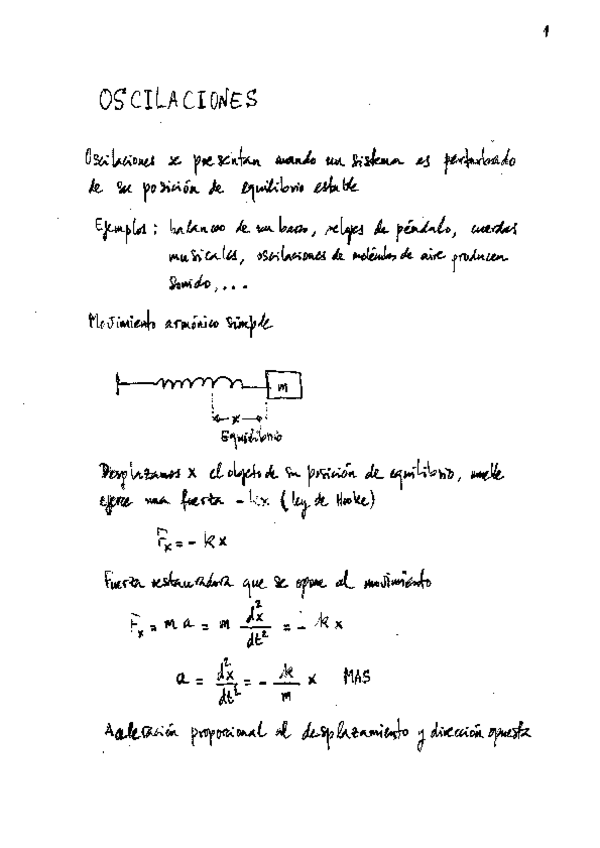 1
OSCILACIONES
Oscilaciones se presentan cuando un sistema es perturbado
de su posición de equilibrio estable
Ejemplos: balanceo de un barco, relojes de péndulo, cuerdas
musicales, oscilaciones de moléculas de aire producen
sonido,...
Movimiento armónico simple
m
x
Equilibrio
Desplazamos x el objeto de su posición de equilibrio, muelle
ejerce una fuerza -kx (ley de Hooke)
Fx = - k x
Fuerza restauradora que se opone al movimiento
Fx = m a = m d²x/dt² = - k x
a = d²x/dt² = - k/m x MAS
Aceleración proporcional al desplazamiento y dirección opuesta